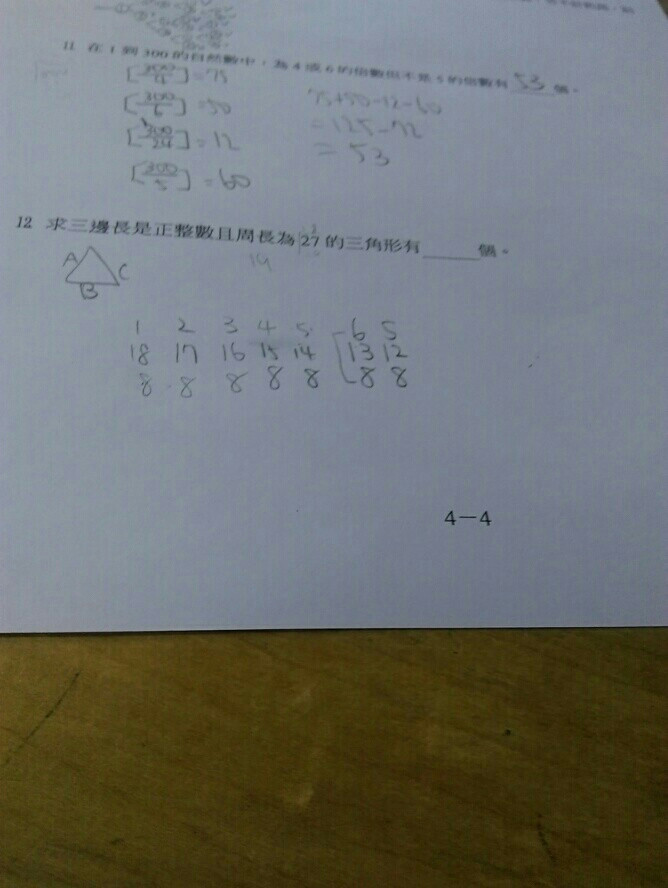 11 在 1 到 300 的自然數中，為 4 或 6 的倍數但不是 5 的倍數有 53 個。
[300/4] = 75
[300/6] = 50
75+50-12-60
[300/24] = 12
= 125-72
= 53
[300/5] = 60
12 求三邊長是正整數且周長為 27 的三角形有______個。
19
A C
B
1 2 3 4 5 6 5
18 17 16 15 14 13 12
8 8 8 8 8 8 8
4－4